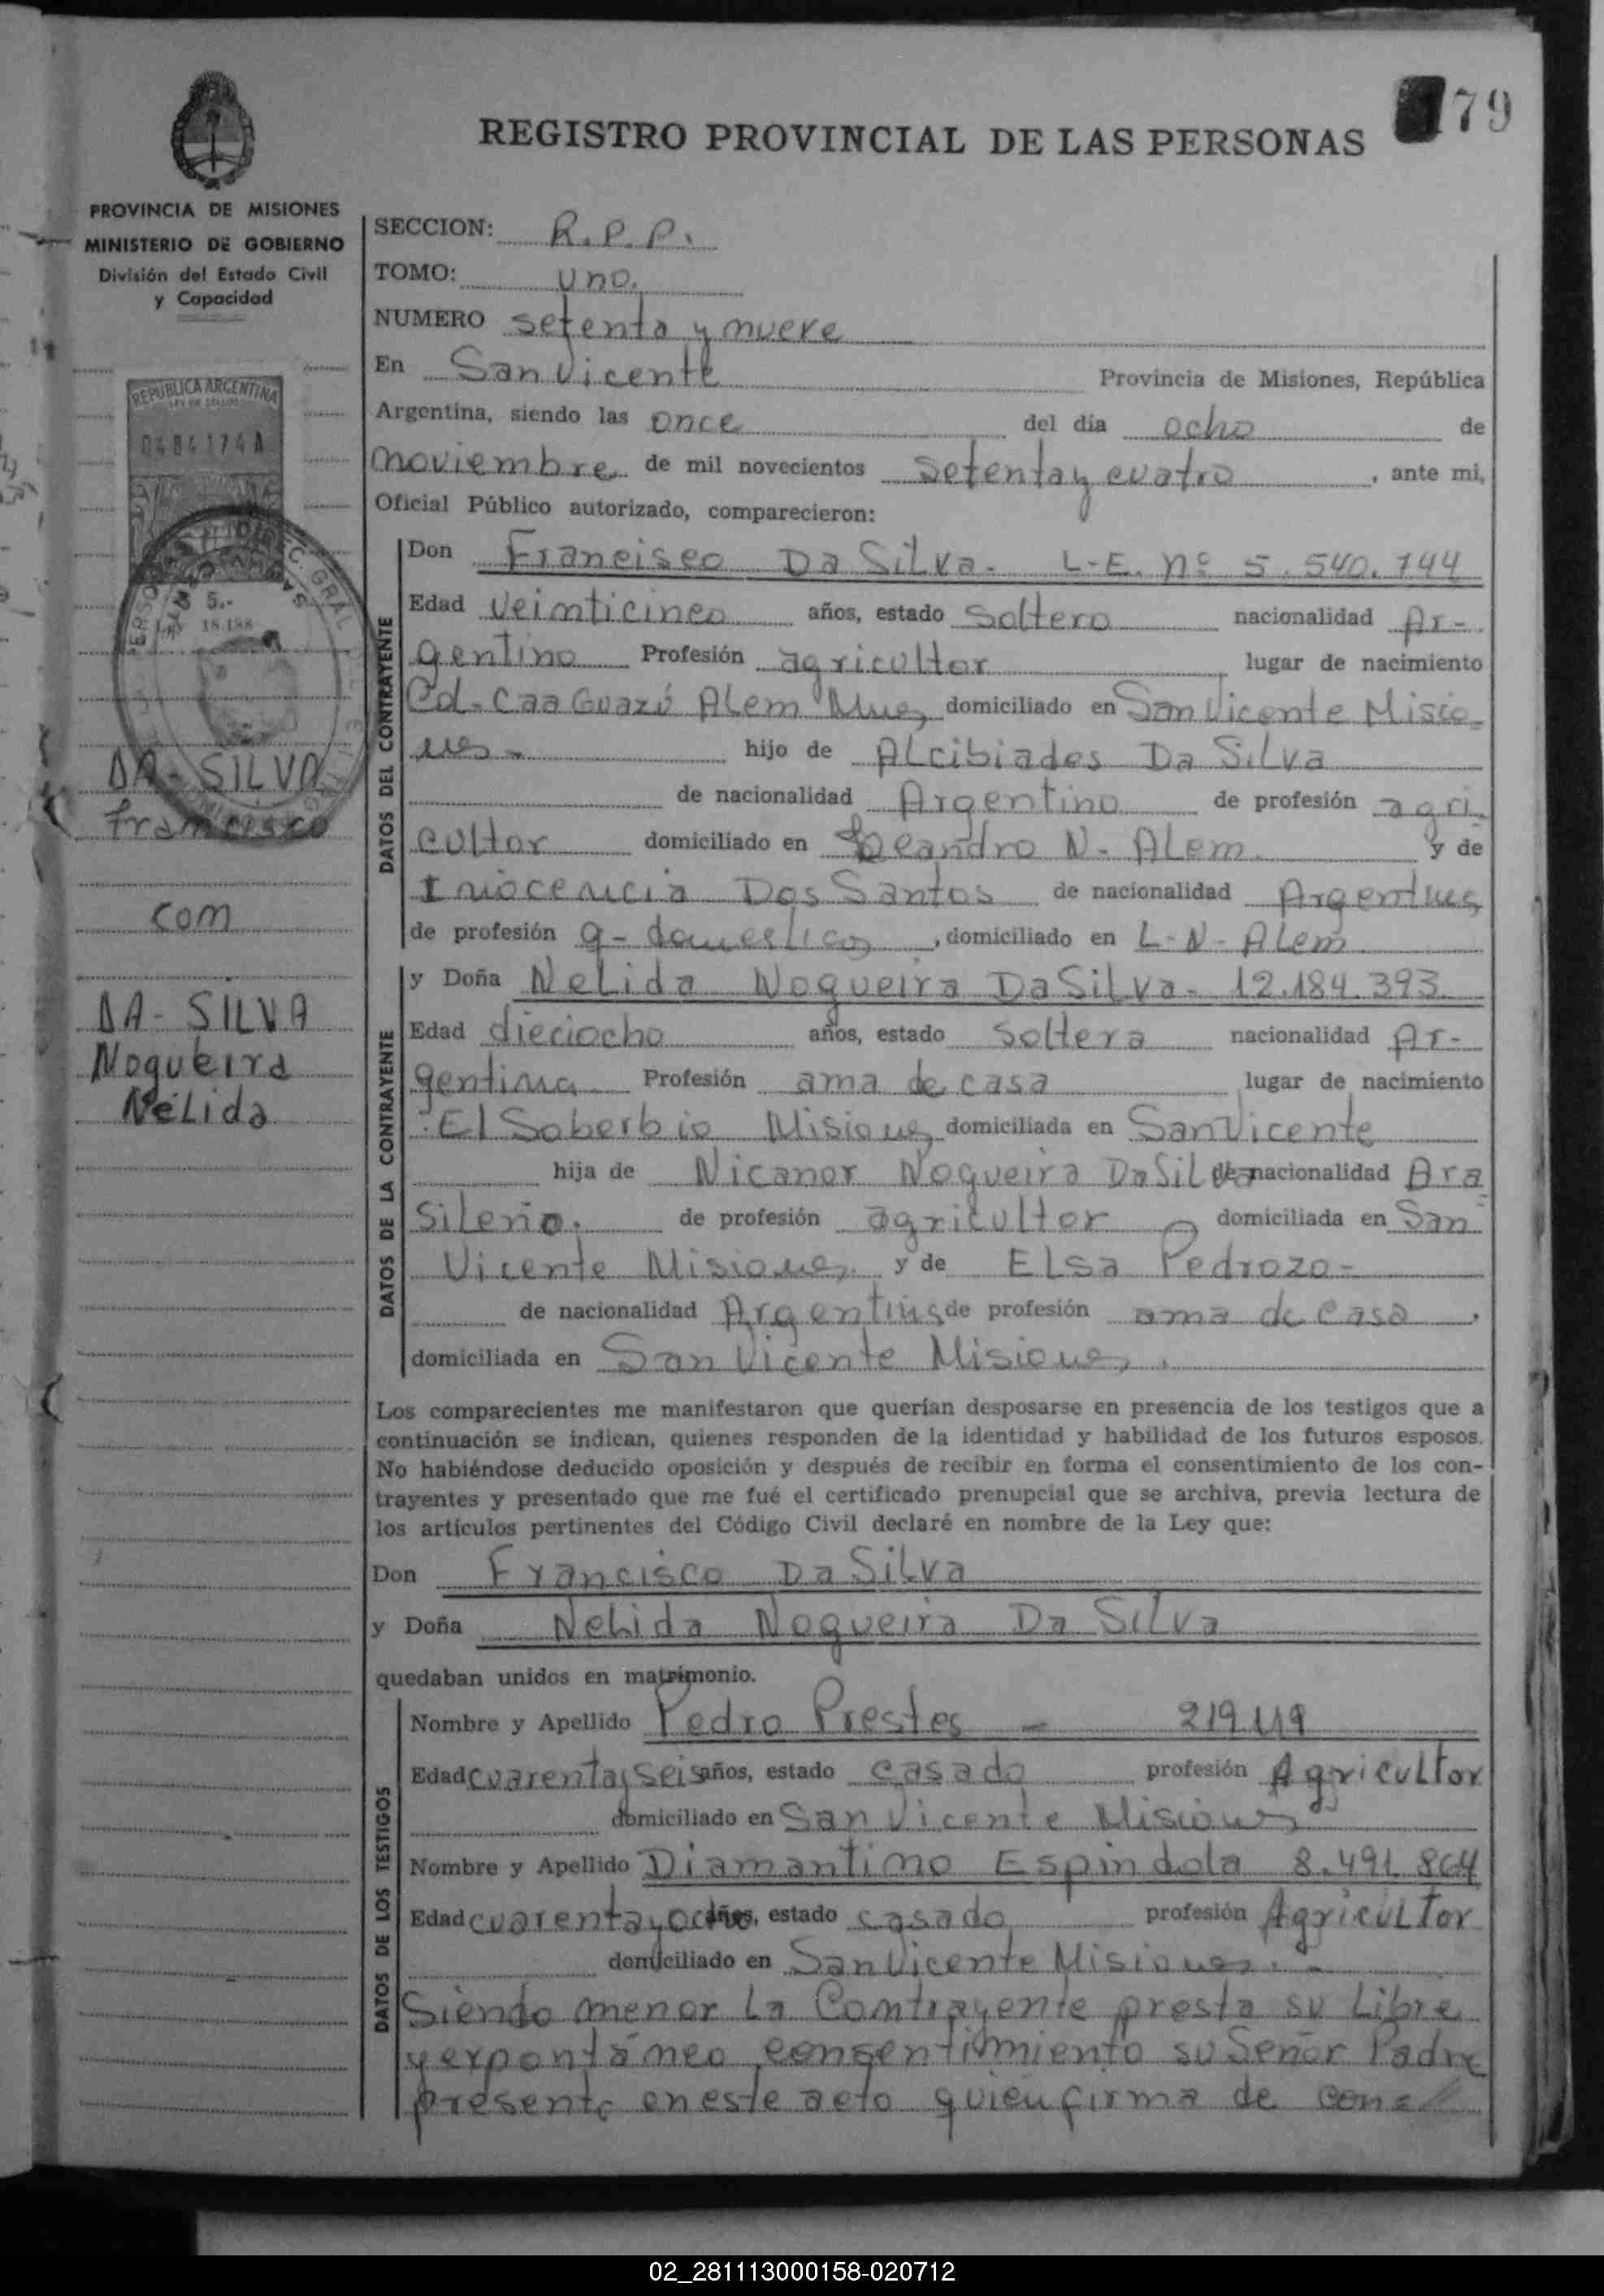 79
REGISTRO PROVINCIAL DE LAS PERSONAS
PROVINCIA DE MISIONES
MINISTERIO DE GOBIERNO
División del Estado Civil
y Capacidad
REPUBLICA ARGENTINA
LEY DE SELLOS
0484174A
5.-
18.188
DIREC. GRAL.
DA-SILVA
francisco
com
DA-SILVA
Nogueira
Nélida
SECCION: R.P.P.
TOMO: uno.
NUMERO setenta y nueve
En San Vicente Provincia de Misiones, República
Argentina, siendo las once del día ocho de
noviembre de mil novecientos setenta y cuatro, ante mi,
Oficial Público autorizado, comparecieron:
DATOS DEL CONTRAYENTE
Don Francisco Da Silva. L-E. nº 5.540.744
Edad veinticinco años, estado soltero nacionalidad Ar-
gentino Profesión agricultor lugar de nacimiento
Cd-CaaGuazú Alem Mnes domiciliado en San Vicente Misio-
nes- hijo de Alcibiades Da Silva
de nacionalidad Argentino de profesión agri-
cultor domiciliado en Leandro N-Alem. y de
Inocencia Dos Santos de nacionalidad Argentina
de profesión q-domesticos, domiciliado en L-N-Alem
DATOS DE LA CONTRAYENTE
y Doña Nelida Nogueira DaSilva- 12.184.393.
Edad dieciocho años, estado soltera nacionalidad Ar-
gentina Profesión ama de casa lugar de nacimiento
El Soberbio Misiones domiciliada en San Vicente
hija de Nicanor Nogueira DaSilva de nacionalidad Bra
silerio. de profesión agricultor domiciliada en San
Vicente Misiones. y de Elsa Pedrozo-
de nacionalidad Argentina de profesión ama de casa.
domiciliada en San Vicente Misiones.
Los comparecientes me manifestaron que querían desposarse en presencia de los testigos que a
continuación se indican, quienes responden de la identidad y habilidad de los futuros esposos.
No habiéndose deducido oposición y después de recibir en forma el consentimiento de los con-
trayentes y presentado que me fué el certificado prenupcial que se archiva, previa lectura de
los artículos pertinentes del Código Civil declaré en nombre de la Ley que:
Don Francisco DaSilva
y Doña Nelida Nogueira Da Silva
quedaban unidos en matrimonio.
DATOS DE LOS TESTIGOS
Nombre y Apellido Pedro Prestes -
Edad cuarenta y seis años, estado casado profesión Agricultor
domiciliado en San Vicente Misiones
Nombre y Apellido Diamantino Espindola 8.491.864
Edad cuarenta y ocho años, estado casado profesión Agricultor
domiciliado en San Vicente Misiones.-
Siendo menor la Contrayente presta su Libre
y expontáneo consentimiento su Señor Padre
presente en este acto quien firma de con
02_281113000158-020712